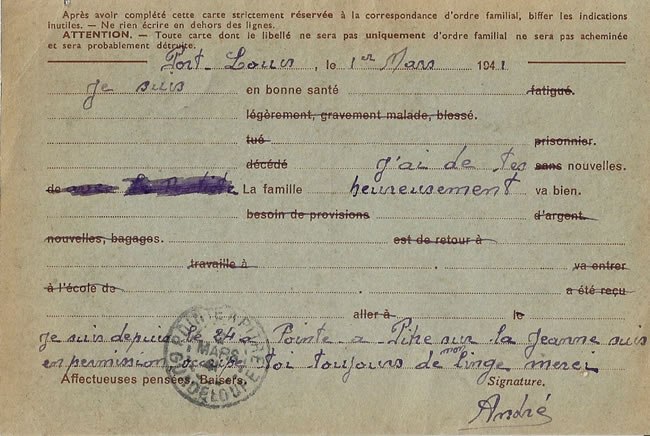 Après avoir complété cette carte strictement réservée à la correspondance d'ordre familial, biffer les indications
inutiles. — Ne rien écrire en dehors des lignes.
ATTENTION. — Toute carte dont le libellé ne sera pas uniquement d'ordre familial ne sera pas acheminée
et sera probablement détruite.
Port-Louis, le 1er Mars 1941
je suis en bonne santé fatigué.
légèrement, gravement malade, blessé.
tué prisonnier.
décédé j'ai de tes sans nouvelles.
de La famille heureusement va bien.
besoin de provisions d'argent.
nouvelles, bagages. est de retour à
travaille à va entrer
à l'école de a été reçu
aller à le
je suis depuis le 24 a Pointe a Pitre sur la Jeanne suis
en permission occupe toi toujours de mon linge merci
Affectueuses pensées, Baisers. Signature.
André
POINTE A PITRE
MARS
GUADELOUPE